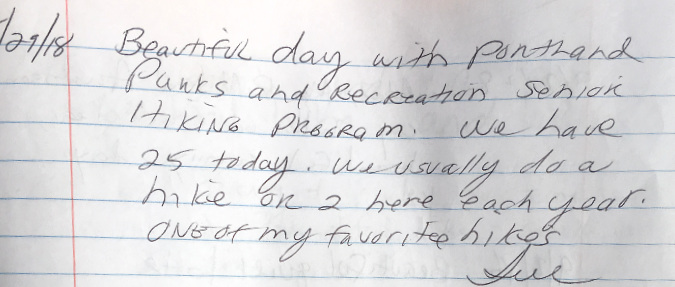 1/29/18 Beautiful day with Portland
Parks and Recreation Senior
Hiking Program. We have
25 today. We usually do a
hike or 2 here each year.
One of my favorite hikes
Sue